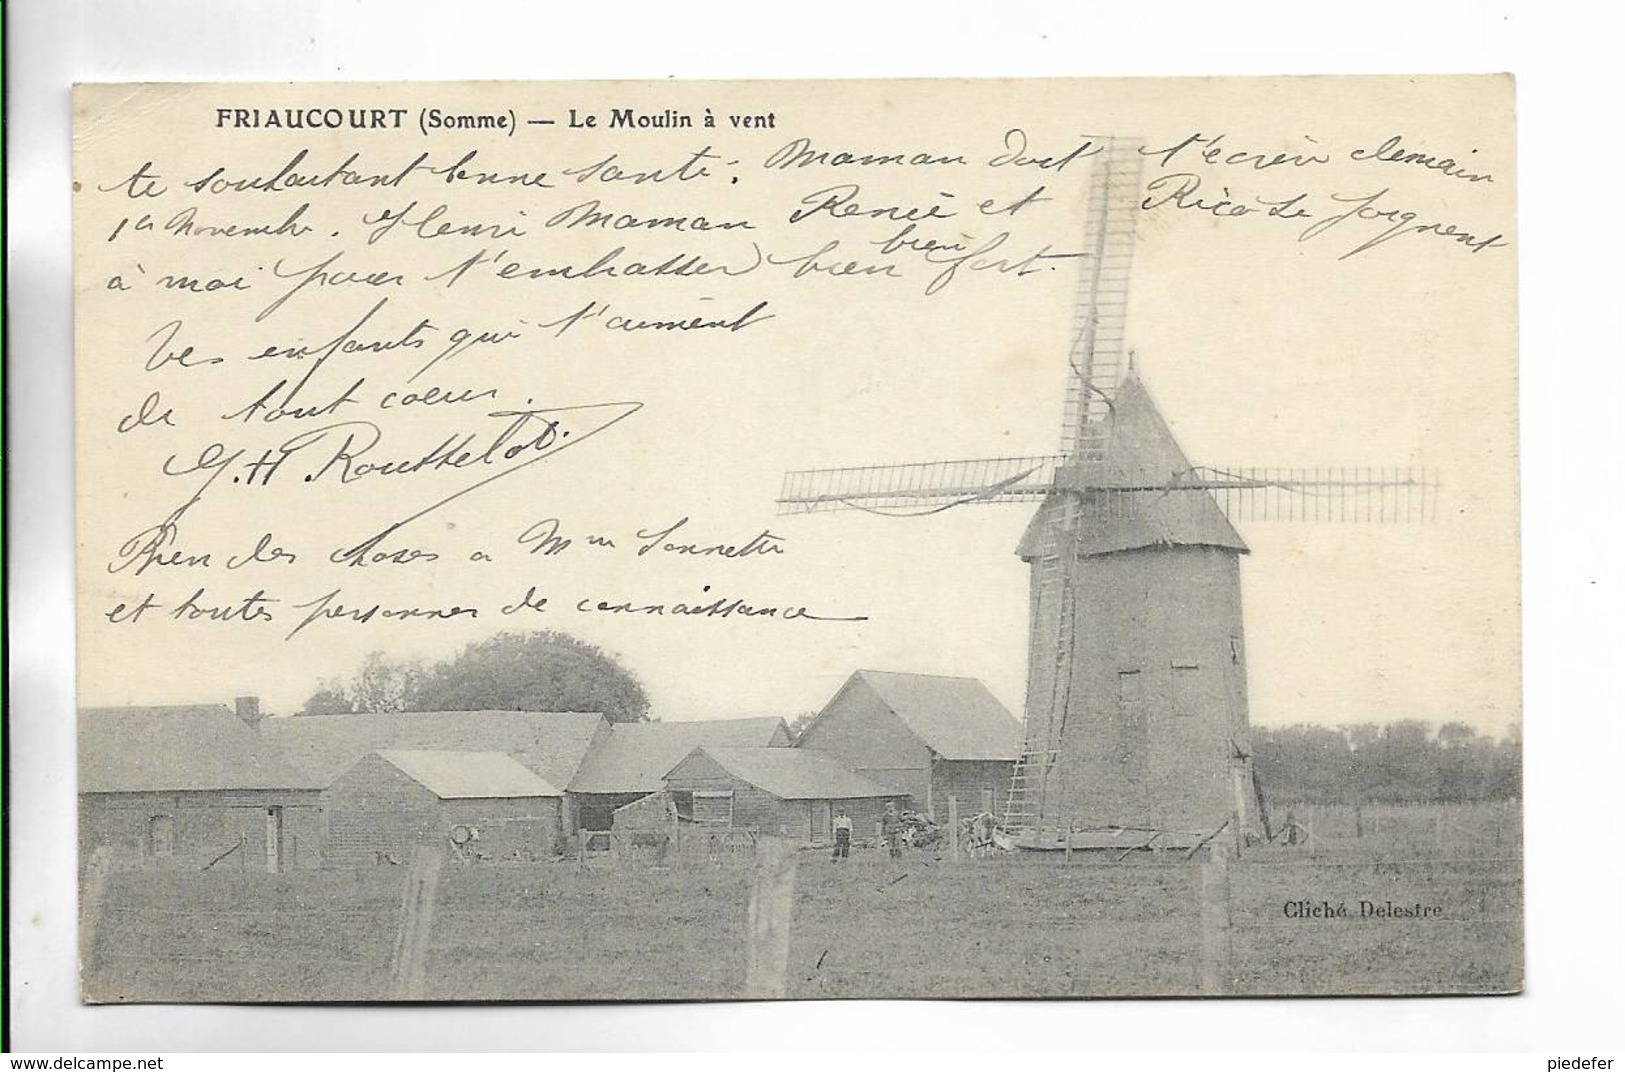 FRIAUCOURT (Somme) — Le Moulin à vent
te souhaitant bonne santé. Maman doit t'écrire demain
1er Novembre. Henri Maman Renée et se joignent
à moi pour t'embrasser bien bien fort.
Tes enfants qui t'aiment
de tout coeur.
G.H Rousselot.
Bien des choses a Mme Sonnette
et toutes personnes de connaissance
Cliché Delestre
www.delcampe.net
piedefer